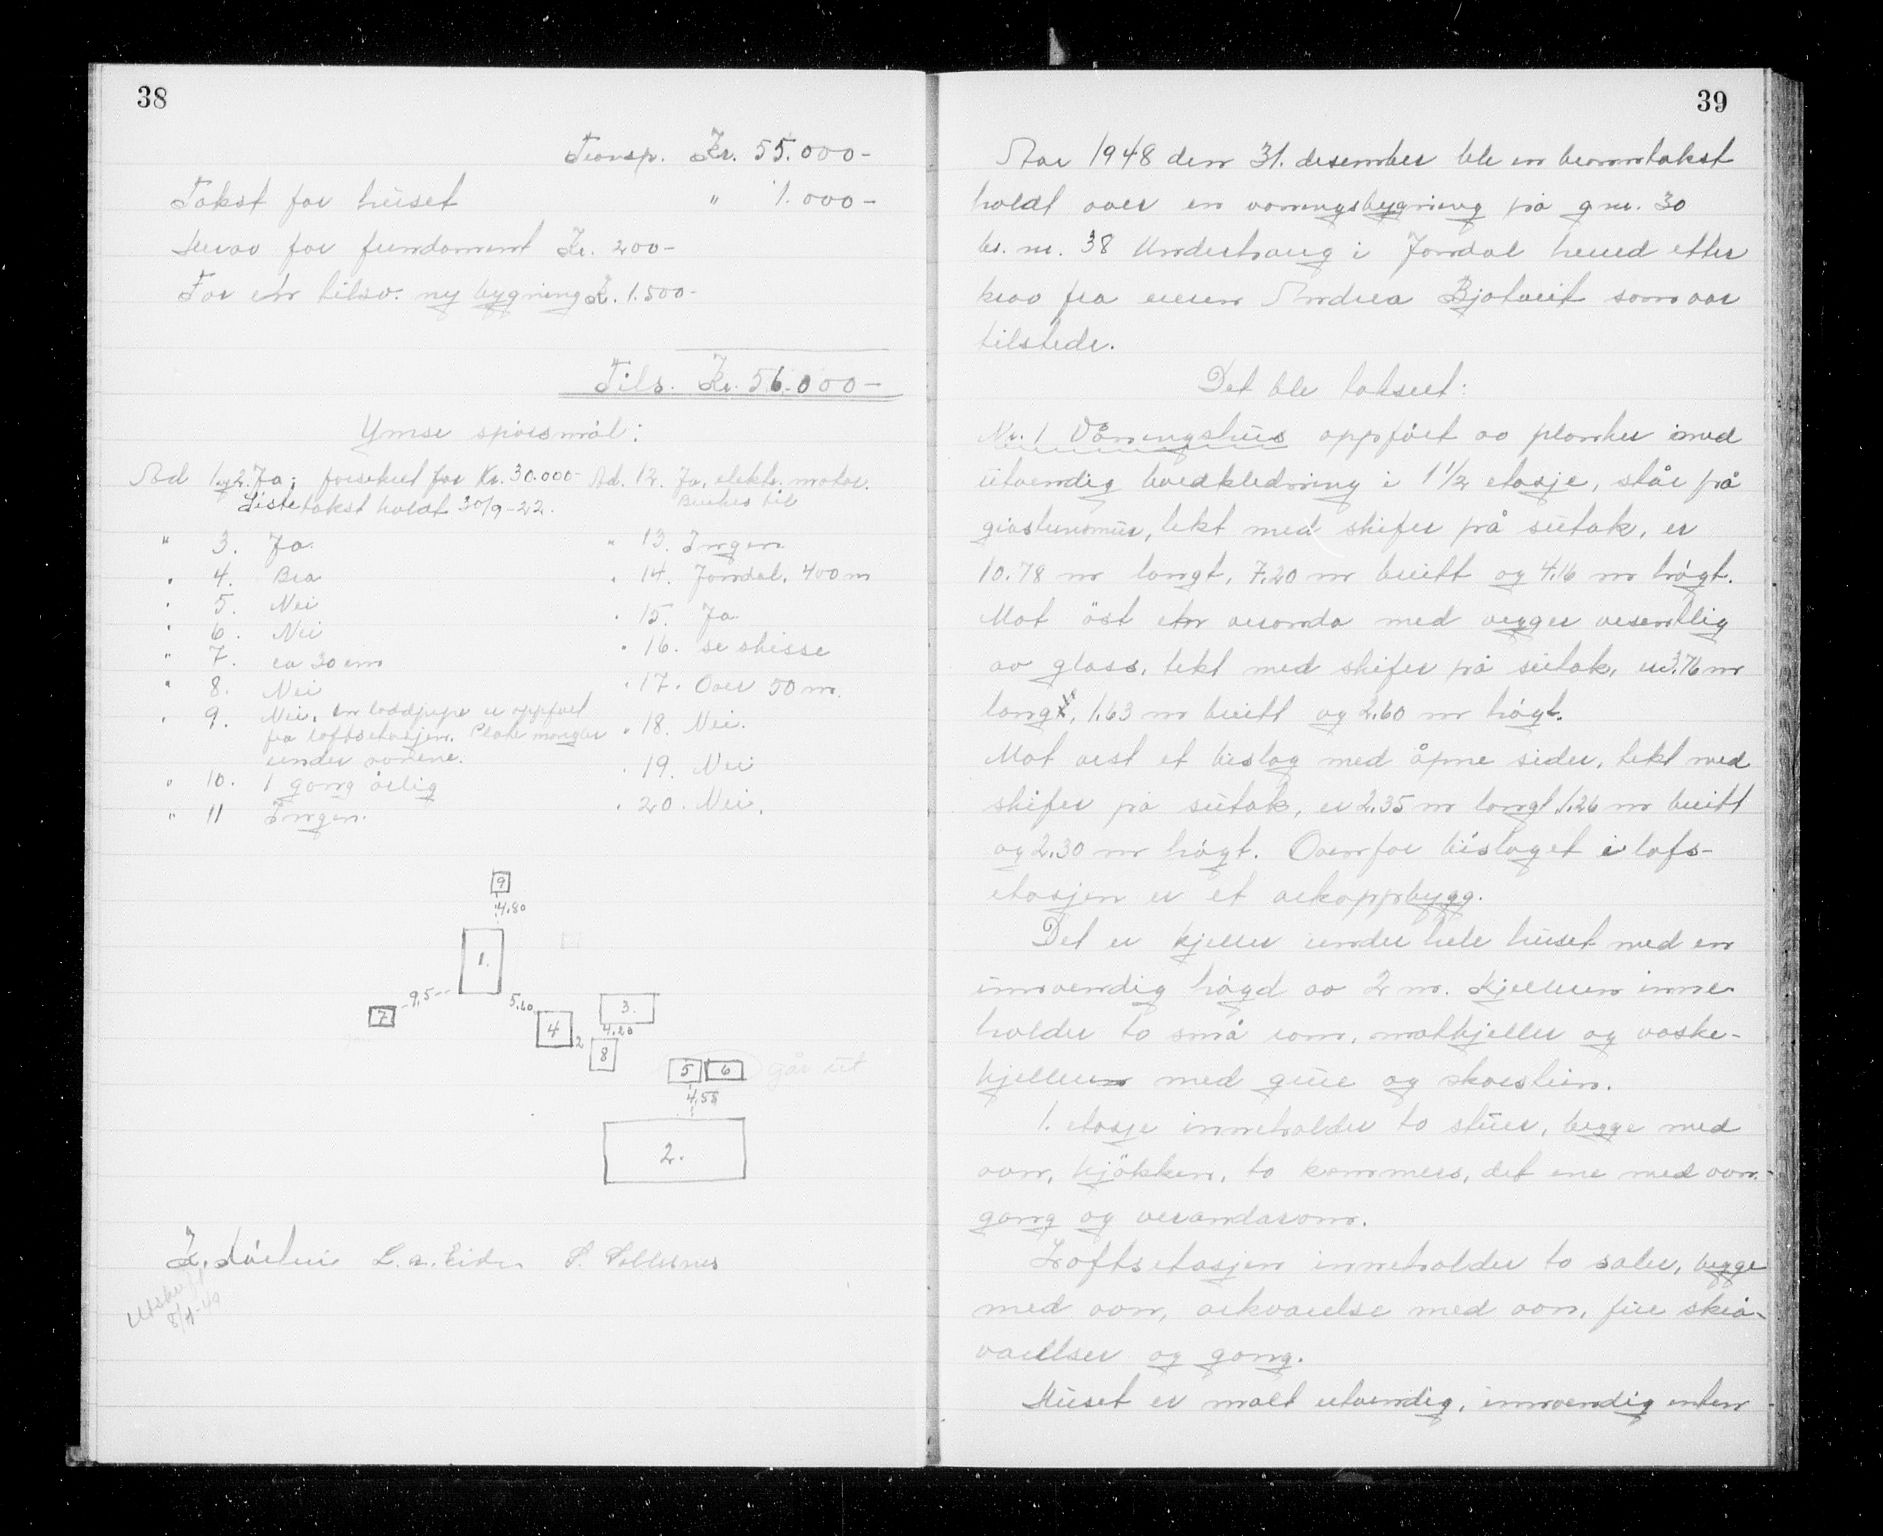 38
Transp. Kr. 55.000-
Takst for huset " 1.000-
Herav for fundament Kr. 200-
For en tilsv. ny bygning Kr. 1.500-
Tils. Kr. 56.000-
Ymse spörsmål:
Ad 1 og 2. Ja; forsikret for Kr. 30.000-
Siste takst holdt 30/9-22.
" 3. Ja.
" 4. Bra
" 5. Nei
" 6. Nei
" 7. ca 30 cm
" 8. Nei
" 9. Nei, en loddpipe er oppfört
fra loftsetasjen. Plate mangler
under ovnene.
" 10. 1 gang årlig
" 11 Ingen.
Ad. 12. Ja, elektr. motor.
Brukes til
" 13. Ingen
" 14. Jondal, 400 m
" 15. Ja
" 16. se skisse
" 17. Over 50 m.
" 18. Nei.
" 19. Nei
" 20. Nei.
9
4.80
1.
9,5
5.60
7
4
2
3.
4.20
8
5 6 går ut
4,58
2.
L. a. Eide
Utskrift
39
Aar 1948 den 31. desember ble en branntakst
holdt over en våningsbygning på gnr. 30
br. nr. 38 Underhaug i Jondal herred etter
krav fra eieren Andrea Bjotveit som var
tilstede.
Det ble taksert:
Nr. 1 Våningshus oppfört av planker med
utvendig bordkledning i 1 1/2 etasje, står på
gråsteinsmur, tekt med skifer på sutak, er
10.78 m langt, 7.20 m breitt og 4.16 m högt.
Mot öst en veranda med vegger vesentlig
av glass, tekt med skifer på sutak, er 3.76 m
lang, 1.63 m breitt og 2.60 m högt.
Mot vest et bislag med åpne sider, tekt med
skifer på sutak, er 2.35 m langt 1.26 m breitt
og 2.30 m högt. Ovenfor bislaget i lofs-
etasjen er et arkoppbygg.
Det er kjeller under hele huset med en
innvendig högd av 2 m. Kjelleren inne-
holder to små rom, matkjeller og vaske-
kjeller med grue og skorstein.
1. etasje inneholder to stuer, begge med
ovn, kjökken, to kammers, det ene med ovn,
gang og verandarom.
Loftsetasjen inneholder to saler, begge
med ovn, arkværelse med ovn, fire skrå-
værelser og gang.
Huset er malt utvendig, innvendig enten